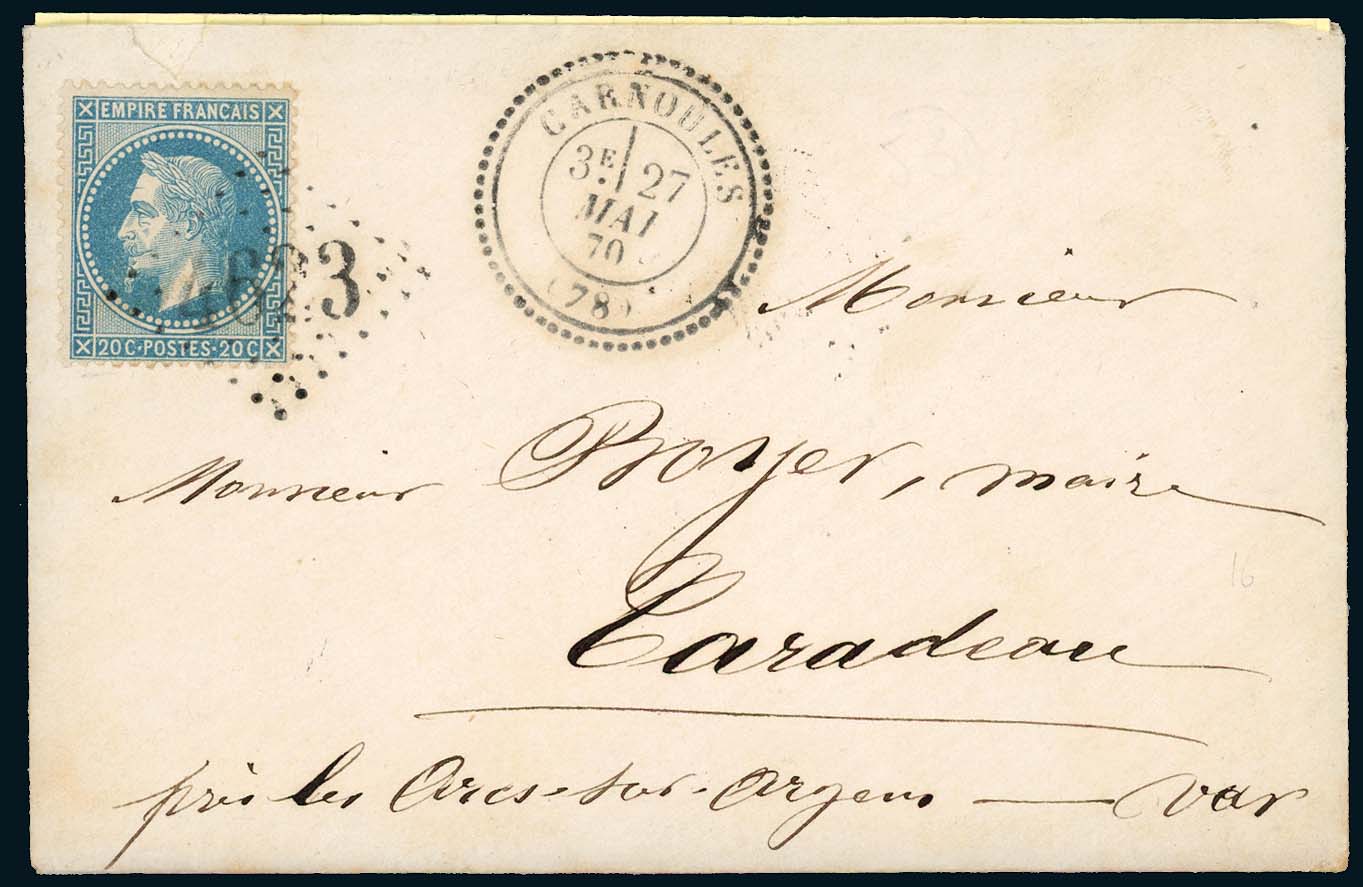 EMPIRE FRANCAIS
20 C · POSTES · 20 C
4623
CARNOULES
3E 27
MAI
70
(78)
Monsieur
Monsieur Boyer, maire
Taradeau
près les Arcs-sur-Argens — Var
16